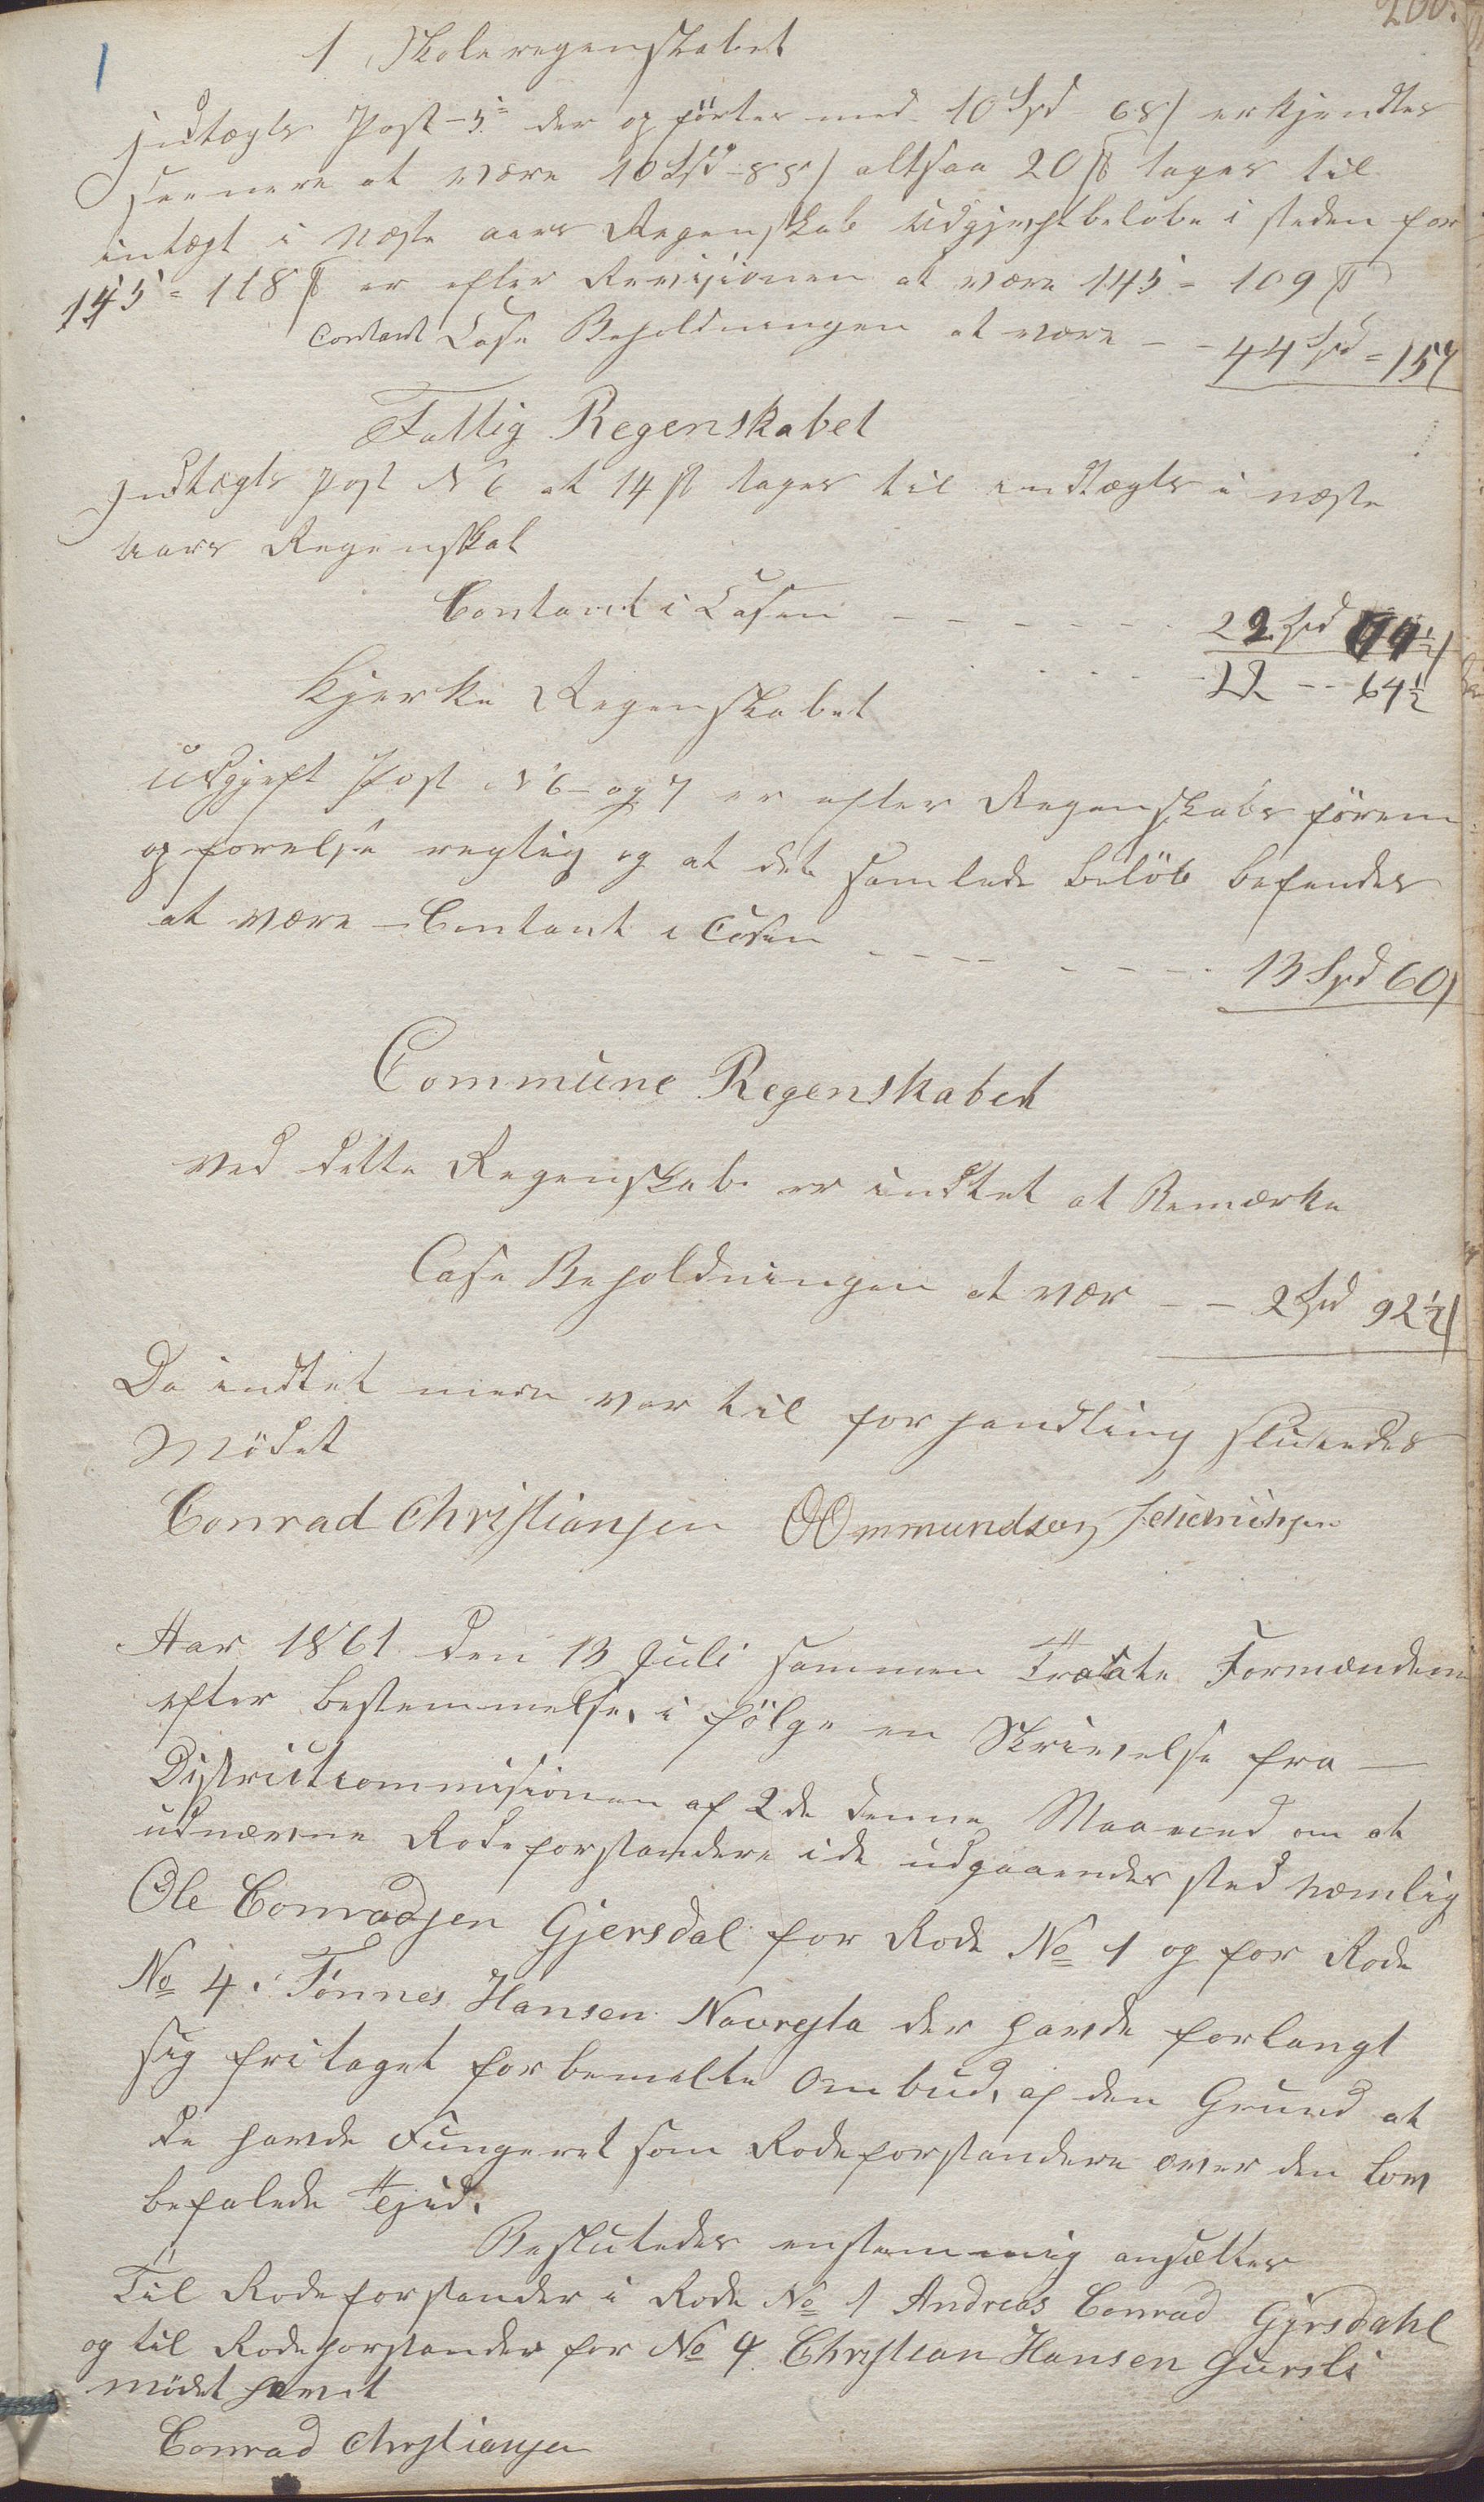 200.
1 Skoleregenskabet
Indtægts Post 5= der opförtes med 10 Spd 68/ erkjendtes
seenere at være 10 Spd 88/ altsaa 20 ß tages til
intægt i Næste aars Regenskab Udgjivtbeløbe i steden for
145 = 118 ß er efter Revisionen at være 145 - 109 ß
Contant Case Beholdningen at være - - 44 Spd = 157
Fattig Regenskabet
Indtægts Post N 6 at 14 ß tages til indtægts i næste
Aars Regenskab
Contant i Casen - - - - - - 22 Spd
22 -- 64½
Kjerke Regenskabet
Udgjeft Post N 6 og 7 er efter Regenskabs förern
opforelse regtig og at det samlede belöb befendes
at være - Contant i Casen - - - - - - - - 13 Spd 60/
Commune Regenskabet
Ved dette Regenskab er indtet at Bemærke
Case Beholdningen at vær - - 2 Spd 92½/
Da indtet mere var til forhandling slutedes
Mödet
Conrad Christiansen OOmmundsen
Aar 1861 den 13 Juli sammen Traate Formændene
efter bestemmelse, i fölge en Skrivelse fra -
Districtcommisionen af 2de denne Maaned om at
udnævne Rodeforstandere i de udgaaendes sted nemlig
Ole Conradsen Gjersdal for Rode No 1 og for Rode
No 4. Tönnes Hansen Navresta der havde forlangt
sig fritaget for bemelte Ombud, af den Grund at
de havde Fungeret som Rodeforstandere over den lov
befalede Tjid.
Beslutedes enstemmig ansettes
Til Rodeforstander i Rode No 1 Andreas Conrad Gjersdahl
og til Rodeforstander for No 4 Christian Hansen Gursli
mödet hævet
Conrad Christiansen